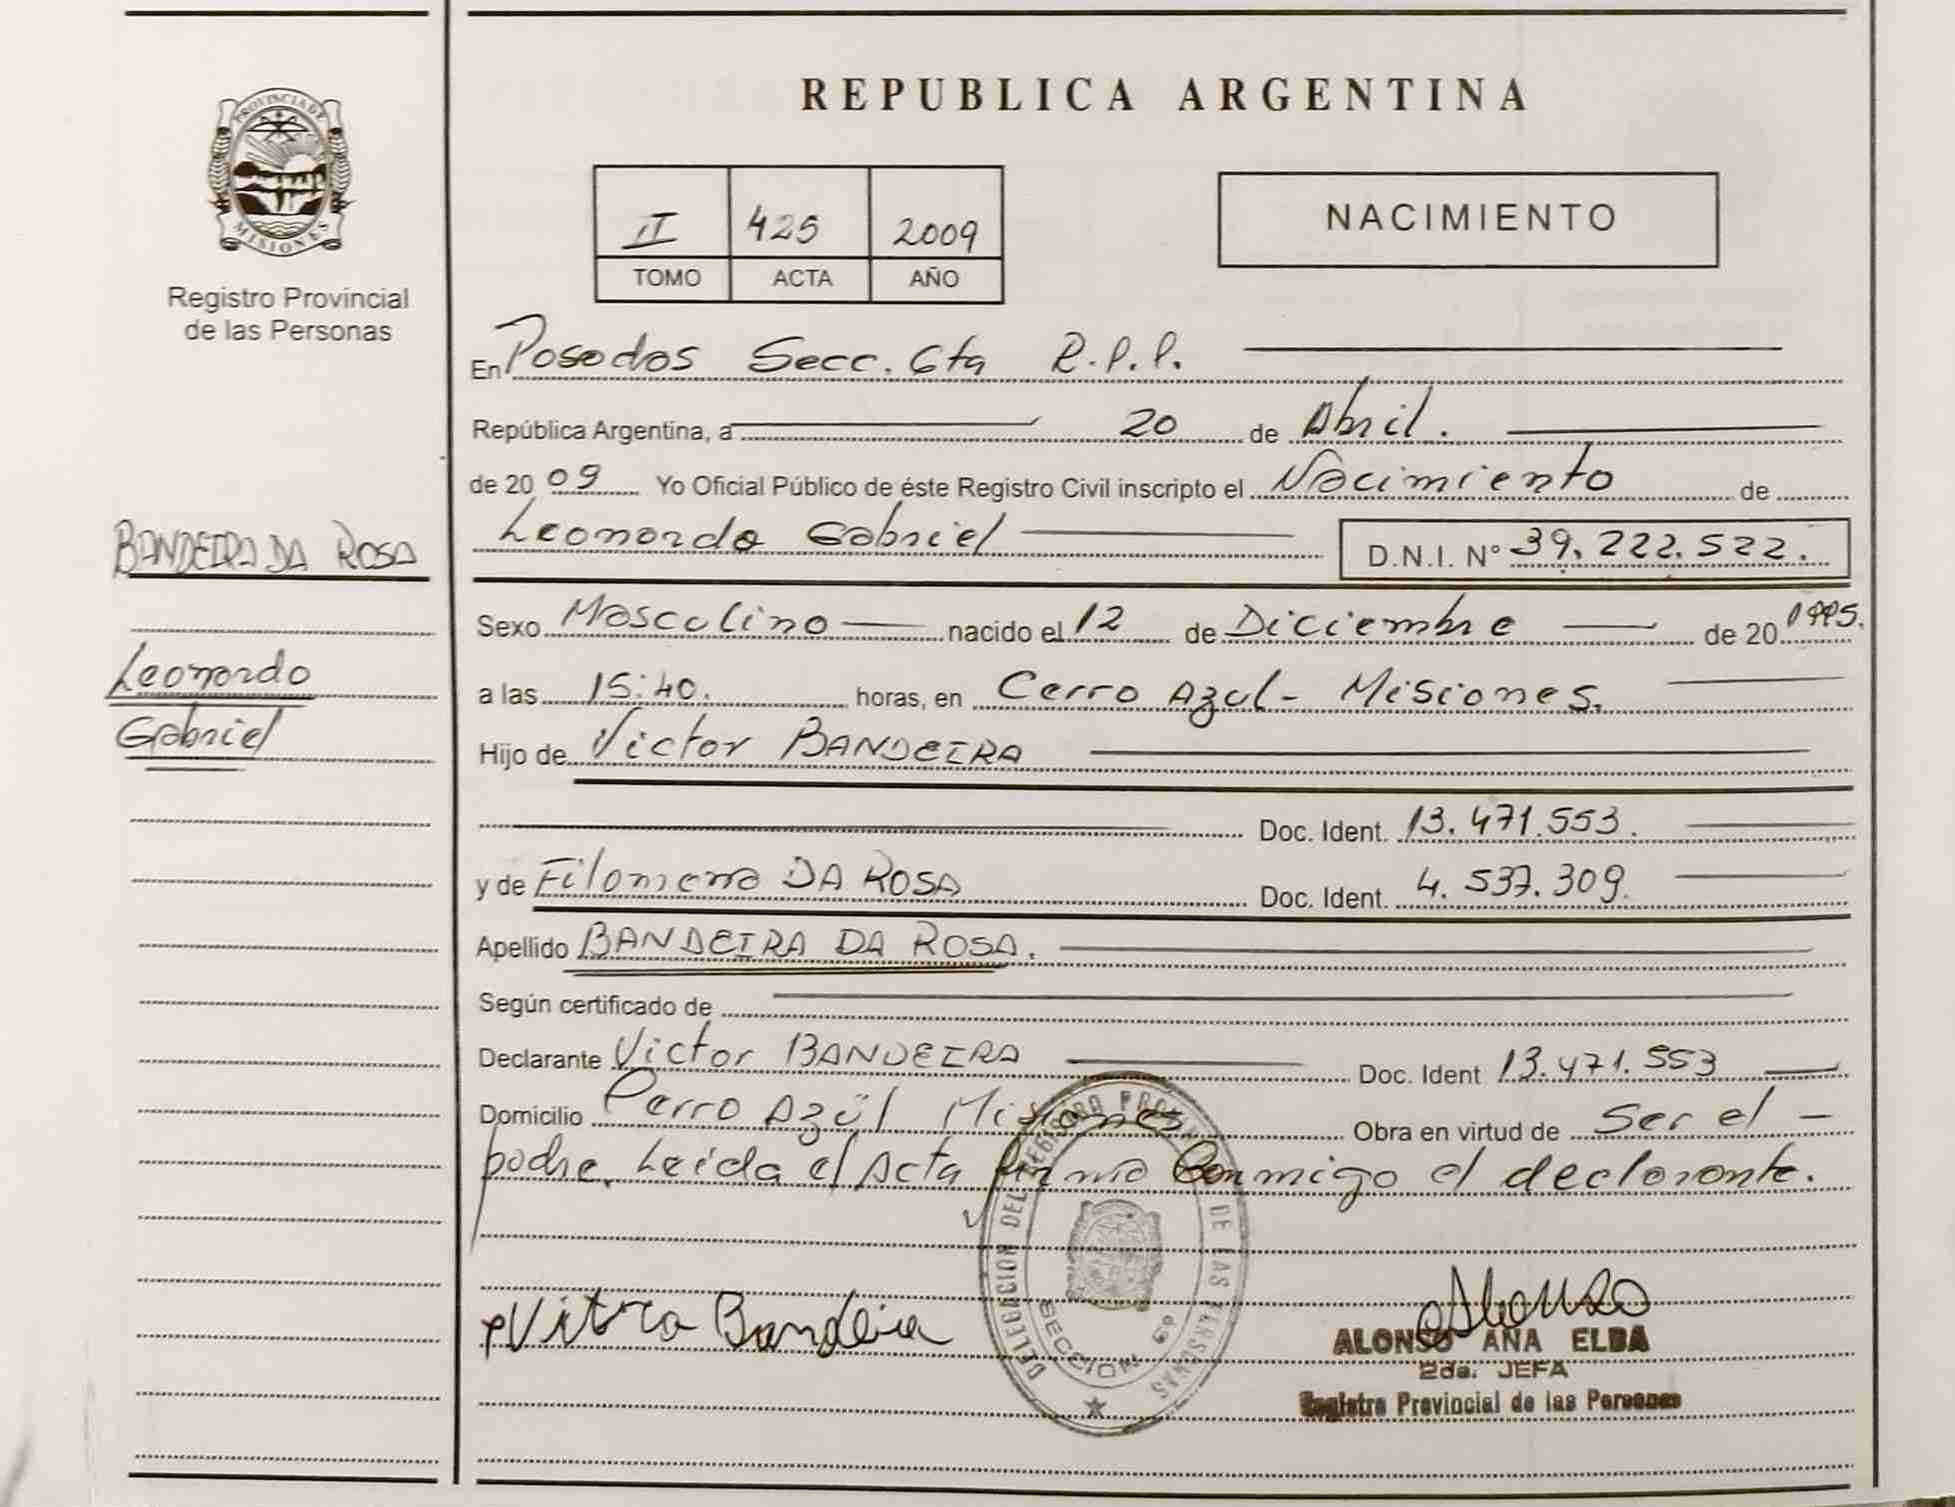 PROVINCIA DE
MISIONES
Registro Provincial
de las Personas
BANDEIRA DA ROSA
Leonardo
Gabriel
REPUBLICA ARGENTINA
II 425 2009
TOMO ACTA AÑO
NACIMIENTO
En Posadas Secc. 6ta R.P.P.
República Argentina, a 20 de Abril.
de 20 09 Yo Oficial Público de éste Registro Civil inscripto el Nacimiento de
Leonardo Gabriel D.N.I. N° 39.222.522.
Sexo Masculino nacido el 12 de Diciembre de 20 1995.
a las 15:40. horas, en Cerro Azul - Misiones.
Hijo de Victor BANDEIRA
Doc. Ident. 13.471.553.
y de Filomena DA ROSA Doc. Ident. 4.537.309.
Apellido BANDEIRA DA ROSA.
Según certificado de
Declarante Victor BANDEIRA Doc. Ident 13.471.553
Domicilio Cerro Azúl Misiones Obra en virtud de Ser el -
padre. Leída el Acta firma Conmigo el declarante.
DELEGACION DEL REGISTRO PROV. DE LAS PERSONAS
SECCION 6a
Bandeira
Alonso
ALONSO ANA ELBA
2da. JEFA
Registro Provincial de las Personas